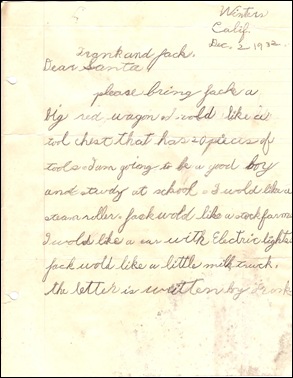 Winters
Calif.
Dec. 2 1932.
Frank and Jack.
Dear Santa
please bring Jack a
big red wagon. I wold like a
tol chest that has 20 pieces of
tools. I am going to be a good boy
and study at school. I wold like a
steam roller. Jack wold like a stock farm
I wold like a car with Electric lights
Jack wold like a little milk truck.
the letter is written by Frank